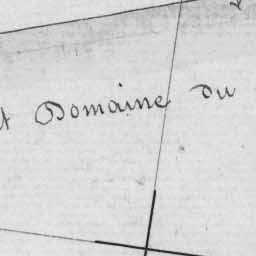 Domaine du